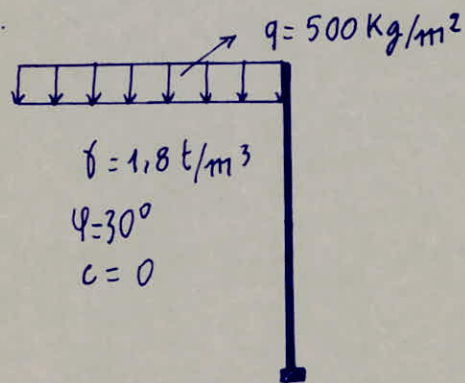 q = 500 Kg/m²
γ = 1,8 t/m³
φ = 30°
c = 0